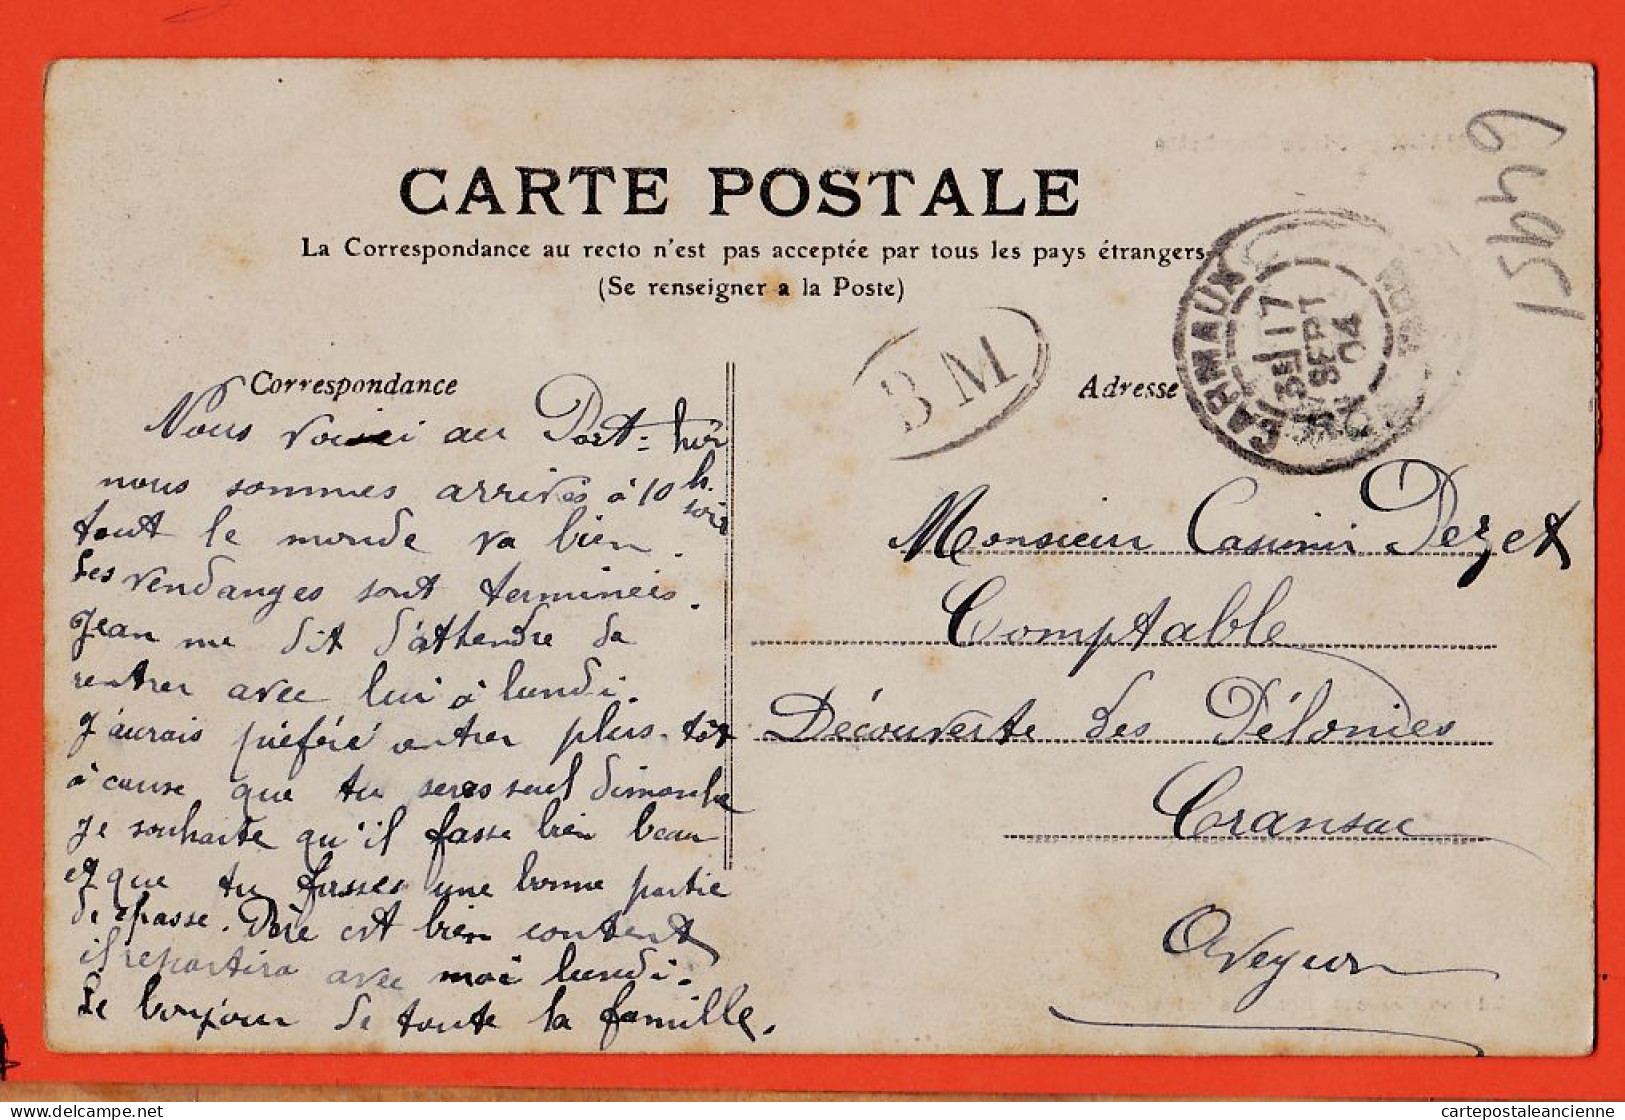 CARTE POSTALE
La Correspondance au recto n'est pas acceptée par tous les pays étrangers
(Se renseigner a la Poste)
6491
BM
CARMAUX
17
SEPT
04
Correspondance
Nous voici au Port
nous sommes arrivés à 10 h. soir
tout le monde va bien.
Les vendanges sont terminées.
Jean me dit d'attendre da
rentrer avec lui à lundi.
J'aurais préféré rentrer plus tôt
à cause que tu seras seul dimanche
Je souhaite qu'il fasse bien beau
et que tu fasses une bonne partie
de chasse. Père est bien content
il repartira avec moi lundi.
Le bonjour de toute la famille.
Adresse
Monsieur Casimir Pezet
Comptable
Découverte des Pélonies
Cransac
Aveyron
delcampe.net
cartepostaleancienne